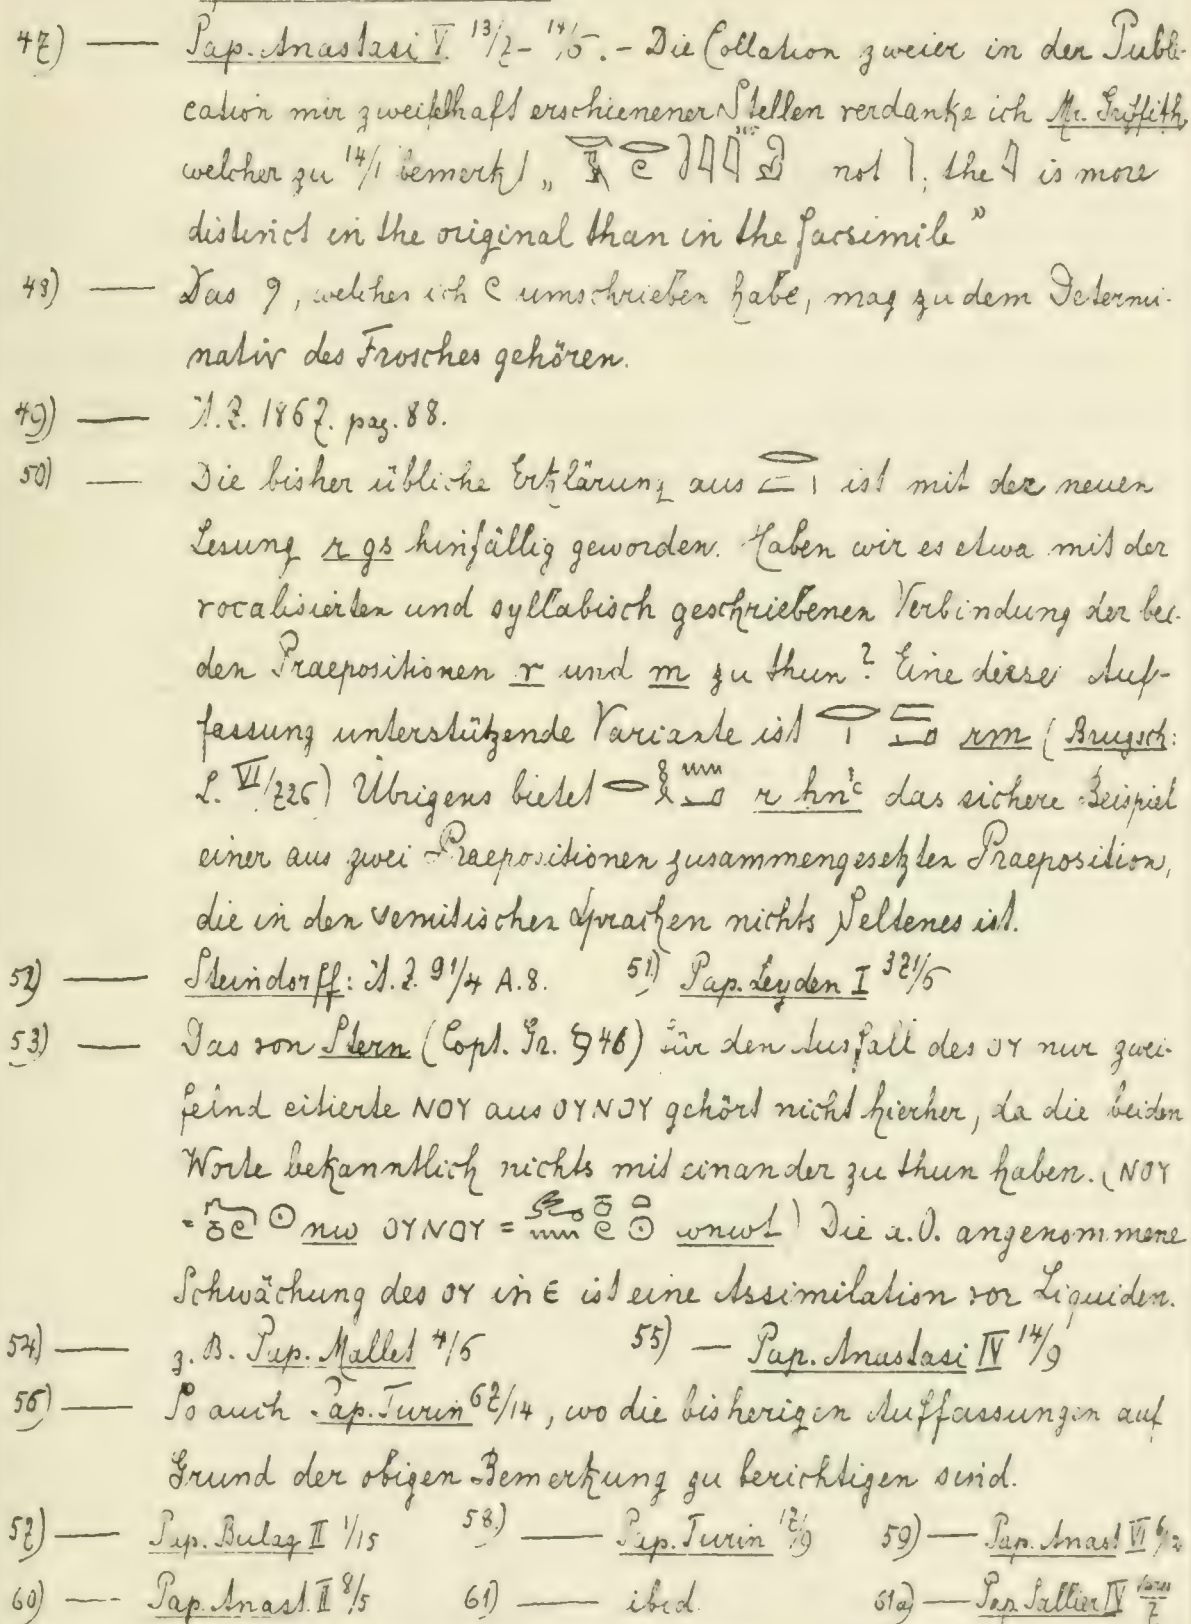 47) — Pap. Anastasi V. 13/7 - 14/5. - Die Collation zweier in der Publi-
cation mir zweifelhaft erschienener Stellen verdanke ich Mr. Griffith,
welcher zu 14/1 bemerkt „ not ; the is more
distinct in the original than in the facsimile”
48) — Das 9, welches ich umschrieben habe, mag zu dem Determi-
nativ des Frosches gehören.
49) — Ä.Z. 1867. pag. 88.
50) — Die bisher übliche Erklärung aus ist mit der neuen
Lesung r gs hinfällig geworden. Haben wir es etwa mit der
vocalisierten und syllabisch geschriebenen Verbindung der bei-
den Praepositionen r und m zu thun? Eine diese Auf-
fassung unterstützende Variante ist rm (Brugsch:
L. VI/726) Übrigens bietet r hnꜥ das sichere Beispiel
einer aus zwei Praepositionen zusammengesetzten Praeposition,
die in den semitischen Sprachen nichts Seltenes ist.
52) — Steindorff: Ä.Z. 91/4 A.8. 51) Pap. Leyden I 371/5
53) — Das von Stern (Copt. Gr. § 46) für den Ausfall des ⲟⲩ nur zwei-
felnd citierte ⲛⲟⲩ aus ⲟⲩⲛⲟⲩ gehört nicht hierher, da die beiden
Worte bekanntlich nichts mit einander zu thun haben. (ⲛⲟⲩ
= nw ⲟⲩⲛⲟⲩ = wnwt) Die a.O. angenommene
Schwächung des ⲟⲩ in ⲉ ist eine Assimilation vor Liquiden.
54) — z.B. Pap. Mallet 4/6 55) — Pap. Anastasi IV 14/9
56) — So auch Pap. Turin 67/14, wo die bisherigen Auffassungen auf
Grund der obigen Bemerkung zu berichtigen sind.
57) — Pap. Bulaq II 1/15 58) — Pap. Turin 17/9 59) — Pap. Anast VI
60) — Pap. Anast. II 8/5 61) — ibid. 61a) — Pap. Sallier IV